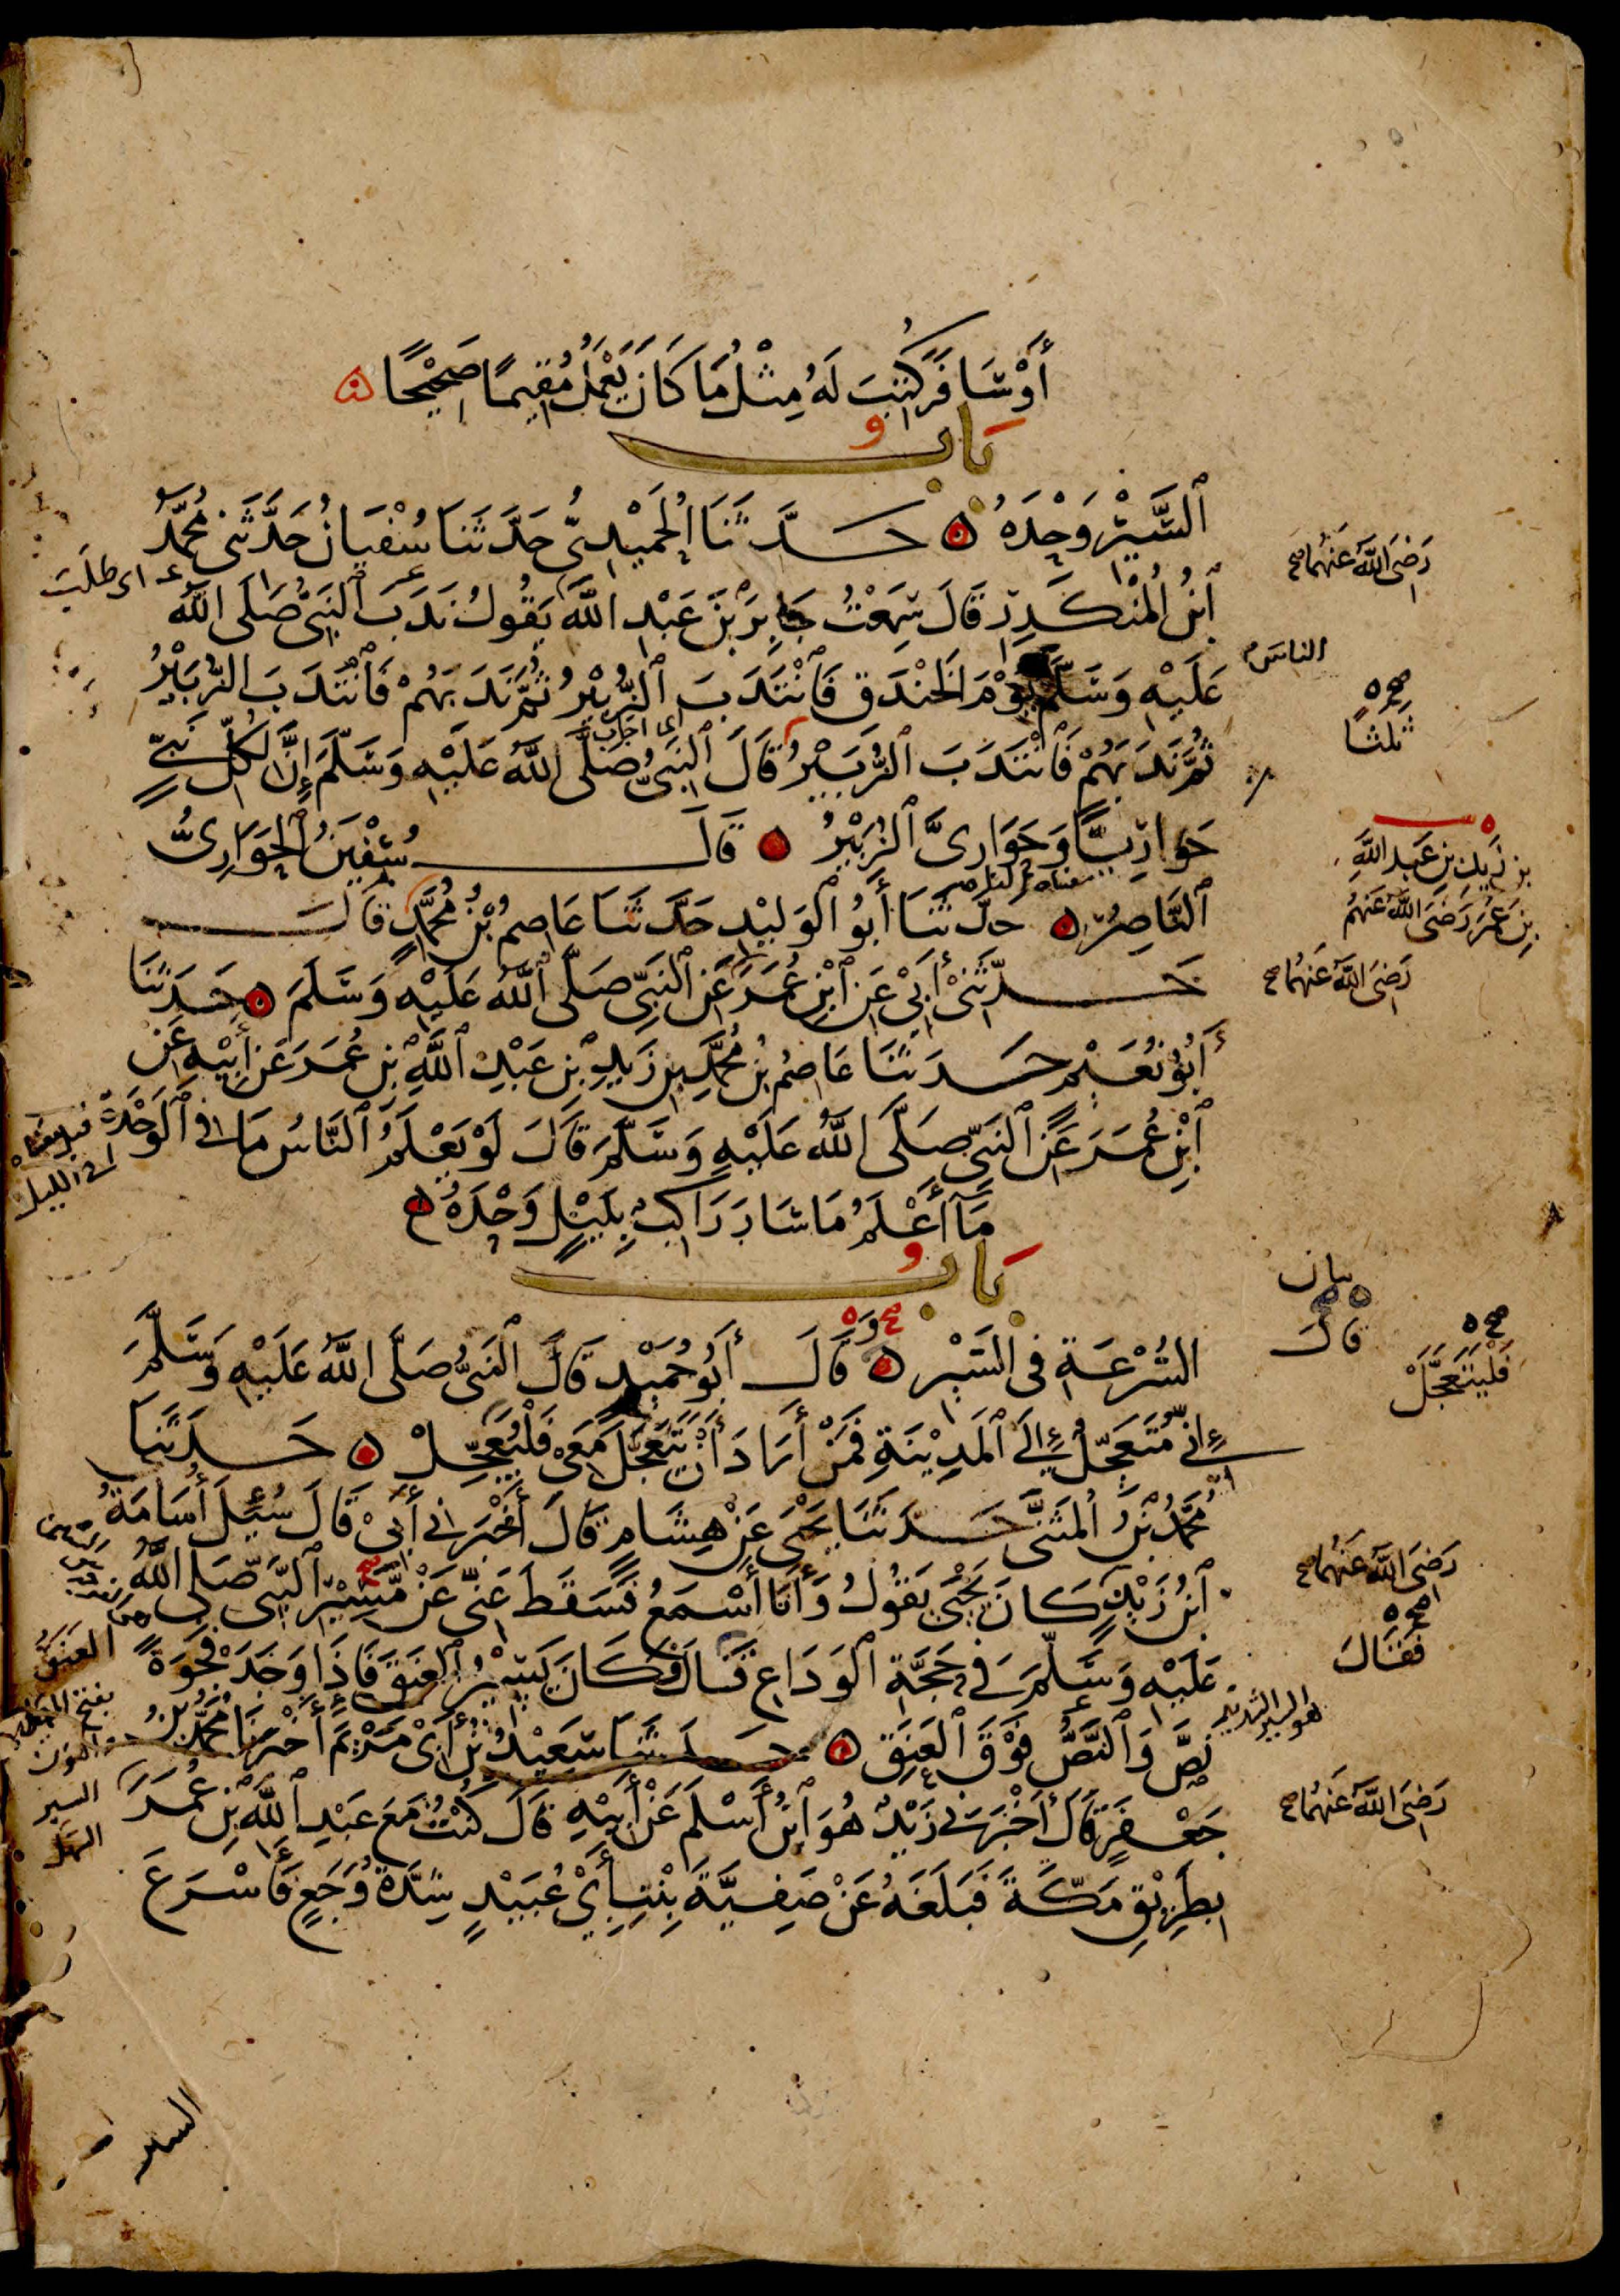 أَوْ سَافَرَ كُتِبَ لَهُ مِثْلُ مَا كَانَ يَعْمَلُ مُقِيمًا صَحِيْحًا
بَابُ
ٱلسَّيْرِ وَحْدَهُ حَدَّثَنَا الْحُمَيْدِيُّ حَدَّثَنَا سُفْيَانُ حَدَّثَنِي مُحَمَّدُ
ٱبْنُ ٱلْمُنْكَدِرِ قَالَ سَمِعْتُ جَابِرَ بْنَ عَبْدِ اللَّهِ يَقُولُ نَدَبَ ٱلنَّبِيُّ صَلَّى اللَّهُ
عَلَيْهِ وَسَلَّمَ يَوْمَ الْخَنْدَقِ فَٱنْتَدَبَ ٱلزُّبَيْرُ ثُمَّ نَدَبَهُمْ فَٱنْتَدَبَ الزُّبَيْرُ
ثُمَّ نَدَبَهُمْ فَٱنْتَدَبَ ٱلزُّبَيْرُ قَالَ ٱلنَّبِيُّ صَلَّى اللَّهُ عَلَيْهِ وَسَلَّمَ إِنَّ لِكُلِّ نَبِيٍّ
حَوَارِيًّا وَحَوَارِيَّ ٱلزُّبَيْرُ قَالَ سُفْيَنُ ٱلْحَوَارِيُّ
ٱلنَّاصِرُ حَدَّثَنَا أَبُو ٱلْوَلِيْدِ حَدَّثَنَا عَاصِمُ بْنُ مُحَمَّدٍ قَالَ
حَدَّثَنِيْ أَبِيْ عَنِ ٱبْنِ عُمَرَ عَنِ ٱلنَّبِيِّ صَلَّى ٱللَّهُ عَلَيْهِ وَسَلَّمَ حَدَثَنَا
أَبُو نُعَيْمٍ حَدَثَنَا عَاصِمُ بْنُ مُحَمَّدِ بْنِ زَيْدِ بْنِ عَبْدِ ٱللَّهِ بْنِ عُمَرَ عَنْ أَبِيْهِ عَنِ
ٱبْنِ عُمَرَ عَنِ ٱلنَّبِيِّ صَلَّى اللَّهُ عَلَيْهِ وَسَلَّمَ قَالَ لَوْ يَعْلَمُ ٱلنَّاسُ مَا فِي ٱلْوَحْدَةِ
مَآ أَعْلَمُ مَا سَارَ رَاكِبٌ بِلَيْلٍ وَحْدَهُ
بَابُ
السُّرْعَةِ فِي السَّيْرِ قَالَ أَبُو حُمَيْدٍ قَالَ ٱلنَّبِيُّ صَلَّى اللَّهُ عَلَيْهِ وَسَلَّمَ
إِنِّي مُتَعَجِّلٌ إِلَى ٱلْمَدِيْنَةِ فَمَنْ أَرَادَ أَنْ يَتَعَجَّلَ مَعِيْ فَلْيُعَجِّلْ حَدثَنَا
مُحَمَّدُ بْنُ الْمُثَنَّى حَدثَنَا يَحْيَى عَنْ هِشَامٍ قَالَ أَخْبَرَنِي أَبِيْ قَالَ سُئِلَ أُسَامَةُ
ٱبْنُ زَيْدٍ كَانَ يَحْيَى يَقُولُ وَأَنَا أَسْمَعُ فَسَقَطَ عَنِّي عَنْ مَسِيْرِ ٱلنَّبِيِّ صَلَّى اللَّهُ
عَلَيْهِ وَسَلَّمَ فِي حَجَّةِ ٱلْوَدَاعِ قَالَ فَكَانَ يَسِيْرُ ٱلْعَنَقَ فَإِذَا وَجَدَ فَجْوَةً
نَصَّ وَٱلنَّصُّ فَوْقَ ٱلْعَنَقِ حَدَثَنَا سَعِيْدُ بْنُ أَبِيْ مَرْيَمَ أَخْبَرَنَا مُحَمَّدُ بْنُ
جَعْفَرٍ قَالَ أَخْبَرَنِي زَيْدٌ هُوَ ٱبْنُ أَسْلَمَ عَنْ أَبِيْهِ قَالَ كُنْتُ مَعَ عَبْدِ ٱللَّهِ بْنِ عُمَرَ
بِطَرِيْقِ مَكَّةَ فَبَلَغَهُ عَنْ صَفِيَّةَ بِنْتِ أَبِيْ عُبَيْدٍ شِدَّةُ وَجَعٍ فَأَسْرَعَ
السير
رَضِيَ اللَّهُ عَنْهُمَا صح
اى طلب
الناسَ
صح ه
ثلثًا
بن زَيْدِ بْنِ عَبدِ اللَّهِ
بْنِ عُمَرَ رَضِيَ اللَّهُ عَنْهُم
رَضِيَ اللَّهُ عَنْهُمَا صح
بيان
قال
صح ه
فَلْيَتَعَجَّلْ
رَضِيَ اللَّهُ عَنْهُمَا صح
فَقَالَ
هو السير الشديد
العنَقُ
بفتح المهملة
والنون
السير
السهل
رَضِيَ اللَّهُ عَنْهُمَا صح